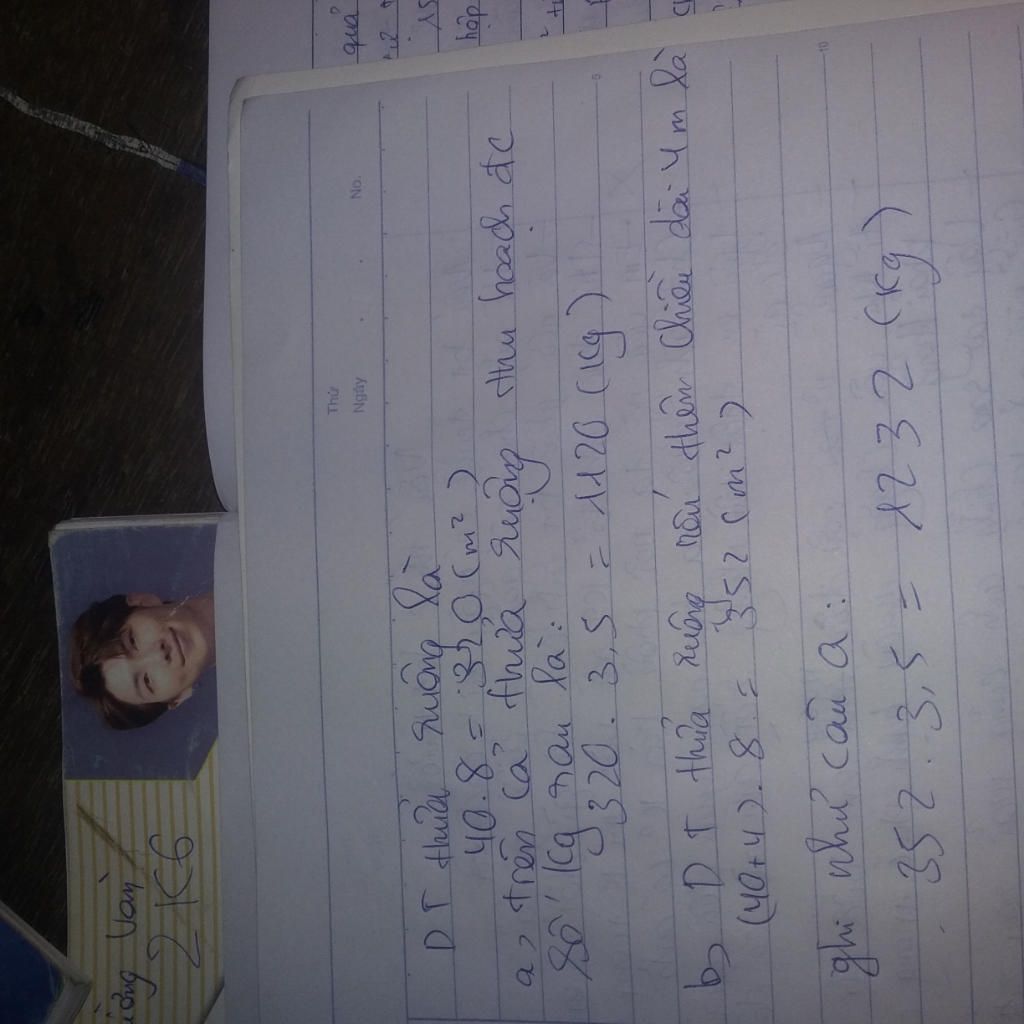 quả
15
hập
Thứ
Ngày
No.
5
10
DT thửa ruộng là
40.8 = 320 (m²)
a, trên cả thửa ruộng thu hoạch đc
Số kg rau là:
320.3,5 = 1120 (kg)
b, DT thửa ruộng nếu thêm chiều dài 4m là
(40+4).8 = 352 (m²)
ghi như câu a:
352.3,5 = 1232 (kg)
Văn
2K6